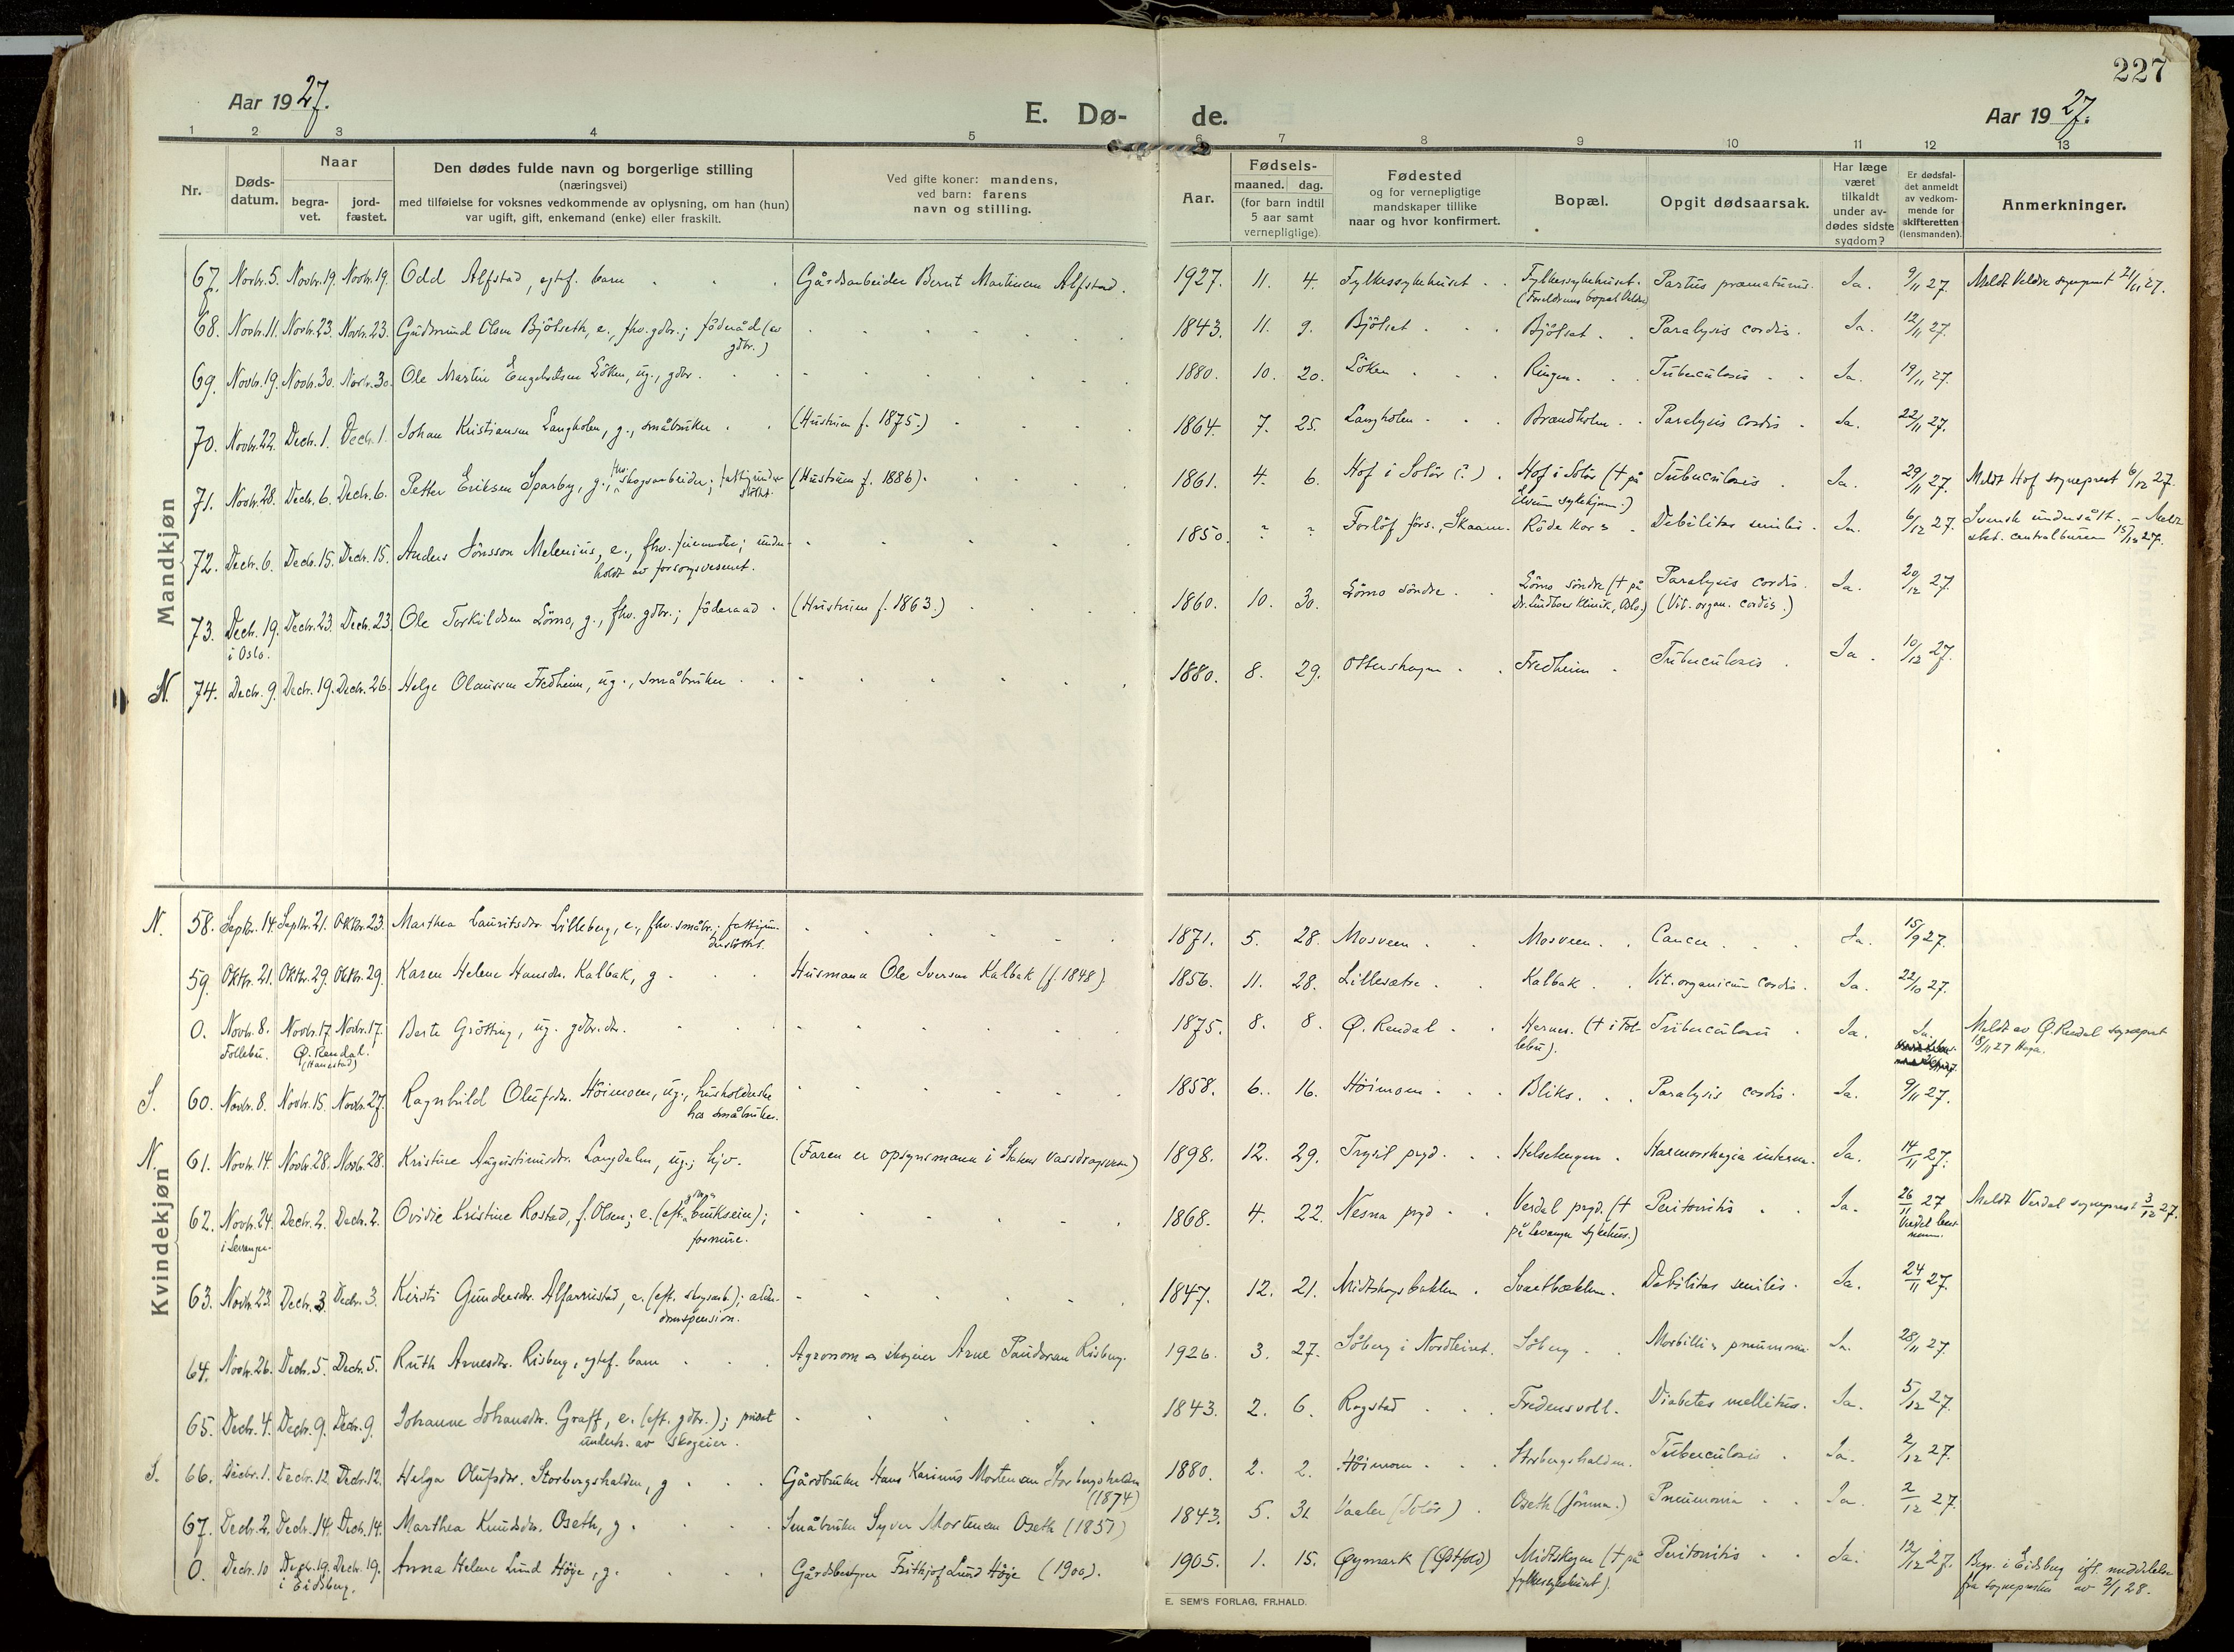 227
Aar 1927.
E. Dø-
de.
Aar 1927.
1 2 3 4 5 6 7 8 9 10 11 12 13
Nr.
Døds-
datum.
Naar
begra-
vet.
jord-
fæstet.
Den dødes fulde navn og borgerlige stilling
(næringsvei)
med tilføielse for voksnes vedkommende av oplysning, om han (hun)
var ugift, gift, enkemand (enke) eller fraskilt.
Ved gifte koner: mandens,
ved barn: farens
navn og stilling.
Aar.
Fødsels-
maaned. dag.
(for barn indtil
5 aar samt
vernepligtige).
Fødested
og for vernepligtige
mandskaper tillike
naar og hvor konfirmert.
Bopæl.
Opgit dødsaarsak.
Har læge
været
tilkaldt
under av-
dødes sidste
sygdom?
Er dødsfal-
det anmeldt
av vedkom-
mende for
skifteretten
(lensmanden).
Anmerkninger.
Mandkjøn
67. Novbr. 5. Novbr. 19. Novbr. 19. Odd Alfstad, egtef. barn Gårdsarbeider Bernt Martinsen Alfstad. 1927. 11. 4. Fylkessykehuset Fylkessykehuset. Partus præmaturus. Ja. 9/11 27. Meldt Veldre sogneprest 21/11 27.
(Foreldrenes bopæl Veldre)
68. Novbr. 11. Novbr. 23. Novbr. 23. Gudmund Olsen Bjölseth, e., fhv. gdbr.; föderåd (av 1843. 11. 9. Bjölset Bjölset Paralysis cordis. Ja. 12/11 27.
gdbr.)
69. Novbr. 19. Novbr. 30. Novbr. 30. Ole Martin Engebretsen Löken, ug., gdbr. 1880. 10. 20. Löken Ringen. Tuberculosis Ja. 19/11 27.
70. Novbr. 22. Decbr. 1. Decbr. 1. Johan Kristiansen Langholen, g., småbruker (Hustruen f. 1875.) 1864. 7. 25. Langholen Brændholen Paralysis cordis Ja. 22/11 27.
71. Novbr. 28. Decbr. 6. Decbr. 6. Petter Eriksen Sparby, g., fhv. skogsarbeider; fattigunder- (Hustruen f. 1886). 1861. 4. 6. Hof i Solör (?) Hof i Solör († på Tuberculosis Ja. 29/11 27. Meldt Hof sogneprest 6/12 27.
støttet. Elverum sykehjem.)
72. Decbr. 6. Decbr. 15. Decbr. 15. Anders Jönsson Melenius, e., fhv. ; under- 1850. ? ? Forlöf förs., Skaane. Röde Kors Debilitas senilis Ja. 6/12 27. Svensk undersått. – Meldt
holdt av forsorgsvesenet. stat. centralbureau 15/12 27.
73. Decbr. 19. Decbr. 23. Decbr. 23. Ole Torkildsen Lömo, g., fhv. gdbr.; föderaad (Hustruen f. 1863.) 1860. 10. 30. Lömo söndre Lömo söndre († på Paralysis cordis. Ja. 20/12 27.
i Oslo. Dr. Lindboes klinik, Oslo.) (Vit. organ. cordis.)
N. 74. Decbr. 9. Decbr. 19. Decbr. 26. Helge Olaussen Fredheim, ug., småbruker 1880. 8. 29. Ottershagen Fredheim Tuberculosis Ja. 10/12 27.
Kvindekjøn
N. 58. Septbr. 14. Septbr. 21. Oktbr. 23. Marthea Lauritsdr. Lilleberg, e., fhv. småbr.; fattigun- 1871. 5. 28. Mosveen Mosveen. Cancer Ja. 15/9 27.
derstöttet.
59. Oktbr. 21. Oktbr. 29. Oktbr. 29. Karen Helene Hansdr. Kalbak, g Husmann Ole Iversen Kalbak (f. 1848). 1856. 11. 28. Lillesætre Kalbak Vit. organicum cordis. Ja. 22/10 27.
0. Novbr. 8. Novbr. 17. Novbr. 17. Berte Grötting, ug. gdbr.dr. 1875. 8. 8. Ø. Rendal Hernes. († i Fol- Tuberculosis Ja. Ja. Meldt av Ø. Rendal sogneprest
Follebu. Ø. Rendal. lebu). 18/11 27 Haga.
(Hanestad)
S. 60. Novbr. 8. Novbr. 15. Novbr. 27. Ragnhild Olufsdr. Höimoen, ug., husholderske 1858. 6. 16. Höimoen Bliks. Paralysis cordis. Ja. 9/11 27.
hos småbruker.
N. 61. Novbr. 14. Novbr. 28. Novbr. 28. Kristine Augustinusdr. Langdalen, ug.; hjv. (Faren er opsynsmann i Statens vassdragsvesen) 1898. 12. 29. Trysil prgd. Helsehugen Hæmorrhagia interna. Ja. 14/11 27.
62. Novbr. 24. Decbr. 2. Decbr. 2. Ovidie Kristine Rostad, f. Olsen; e. (eft. brukseier); 1868. 4. 22. Nesna prgd Verdal prgd. († Peritonitis Ja. 26/11 27 Meldt Verdal sogneprest 3/12 27.
i Levanger. formue. på Levanger sykehus.) Verdal lens-
mann.
63. Novbr. 23. Decbr. 3. Decbr. 3. Kirsti Gundersdr. Alfarrustad, e. (eft. skogsarb.); alder- 1847. 12. 21. Midtskogsbakken Svartbækken. Debilitas senilis. Ja. 24/11 27.
domspension.
64. Novbr. 26. Decbr. 5. Decbr. 5. Ruth Arnesdr. Risberg, egtef. barn Agronom og skogeier Arne Risberg. 1926. 3. 27. Söberg i Nordleiret. Söberg Morbilli & pneumonia Ja. 28/11 27.
65. Decbr. 4. Decbr. 9. Decbr. 9. Johanne Johansdr. Graff, e. (eft. gdbr.); privat 1843. 2. 6. Rogstad Fredensvoll. Diabetes mellitus. Ja. 5/12 27.
underh. av skogeier.
S. 66. Decbr. 1. Decbr. 12. Decbr. 12. Helga Olufsdr. Storbergshalden, g Gårdbruker Hans Karinus Mortensen Storbergshalden 1880. 2. 2. Höimoen Storbergshalden. Tuberculosis Ja. 2/12 27.
(1874)
67. Decbr. 2. Decbr. 14. Decbr. 14. Marthea Knudsdr. Oseth, g. Småbruker Syver Mortensen Oseth (1851) 1843. 5. 31. Vaaler (Solör) Oseth (Jömna.) Pneumonia Ja. 2/12 27.
0. Decbr. 10 Decbr. 19. Decbr. 19. Anna Helene Lund Höje, g. Gårdsbestyrer Frithjof Lund Höje (1900). 1905. 1. 15. Øymark (Østfold) Midtskogen († på Peritonitis Ja. 12/12 27. Begr. i Eidsberg ifl. meddelelse
i Eidsberg. fylkessykehuset). fra sognepresten av 2/1 28.
E. SEM'S FORLAG, FR.HALD.